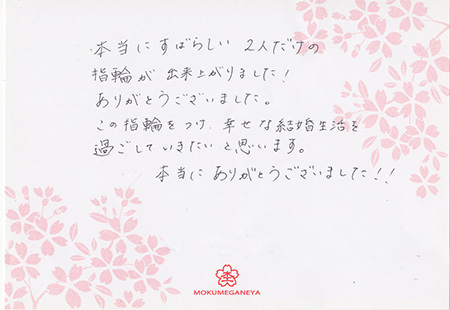 本当にすばらしい 2人だけの
指輪が 出来上がりました!
ありがとうございました。
この指輪をつけ、幸せな結婚生活を
過ごしていきたいと思います。
本当に ありがとうございました!!
MOKUMEGANEYA